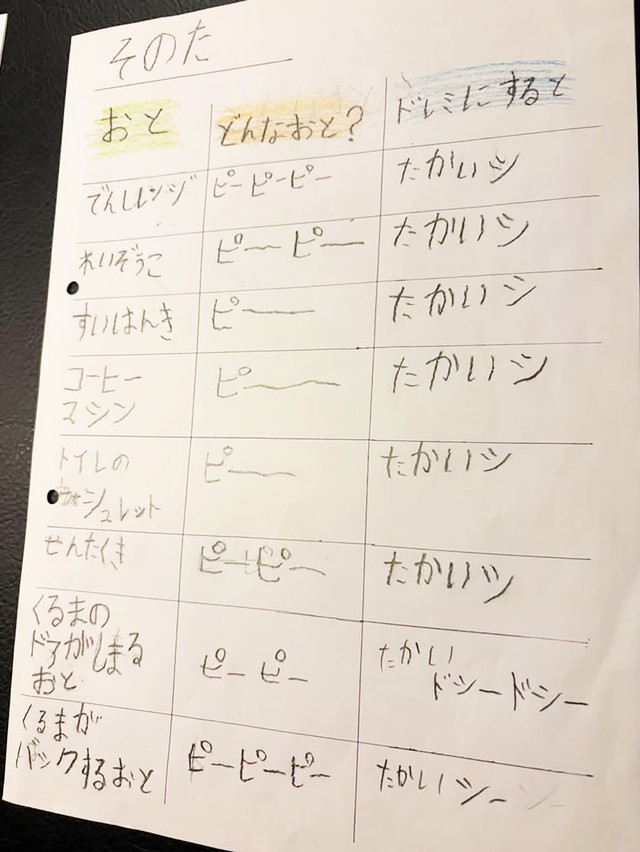 そのた
おと どんなおと? ドレミにすると
でんしレンジ ピーピーピー たかいシ
れいぞうこ ピー ピー たかいシ
すいはんき ピー たかいシ
コーヒー ピー たかいシ
マシン
トイレの ピー たかいシ
シュレット
せんたくき ピーピー たかいシ
くるまの
ドアがしまる ピー ピー たかい
おと ドシードシー
くるまが
バックするおと ピーピーピー たかいシー